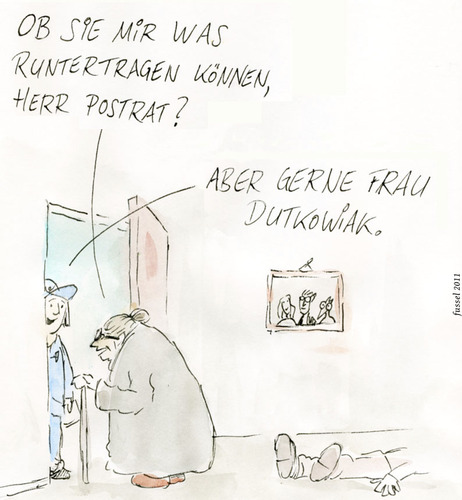 OB SIE MIR WAS
RUNTERTRAGEN KÖNNEN,
HERR POSTRAT?
ABER GERNE FRAU
DUTKOWIAK.
fussel 2011